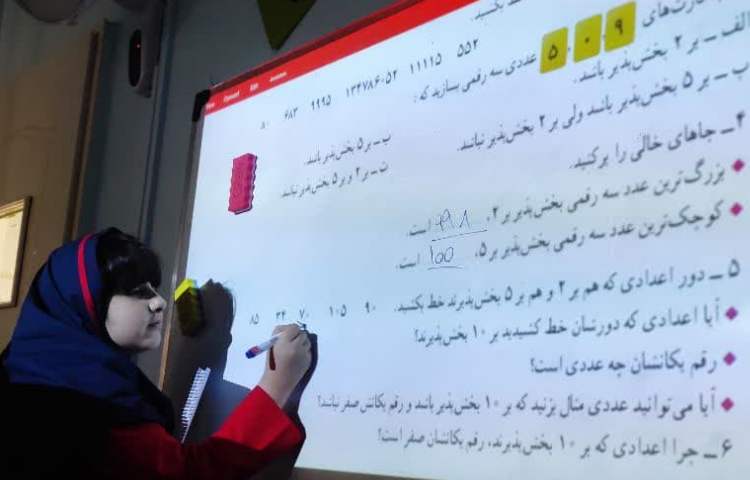 خط بکشید.
۵۵۲ ۱۱۱۱۵ ۱۳۴۷۸۶۰۵۲ ۹۹۹۵ ۶۸۳ ۸۰
۹ ۰ ۵ عددی سه رقمی بسازید که:
الف ــ بر ۲ بخش‌پذیر باشد.
ب ــ بر ۵ بخش‌پذیر باشد.
پ ــ بر ۵ بخش‌پذیر باشد ولی بر ۲ بخش‌پذیر نباشد.
ت ــ بر ۲ و بر ۵ بخش‌پذیر نباشد.
۴ــ جاهای خالی را پر کنید.
بزرگ‌ترین عدد سه رقمی بخش‌پذیر بر ۲، ۹۹۸ است.
کوچک‌ترین عدد سه رقمی بخش‌پذیر بر ۵، ۱۰۰ است.
۵ ــ دور اعدادی که هم بر ۲ و هم بر ۵ بخش‌پذیرند خط بکشید.
۹۰ ۱۰۵ ۷۰ ۳۴ ۸۵
آیا اعدادی که دورشان خط کشیدید بر ۱۰ بخش‌پذیرند؟
رقم یکانشان چه عددی است؟
آیا می‌توانید عددی مثال بزنید که بر ۱۰ بخش‌پذیر باشد و رقم یکانش صفر نباشد؟
۶ــ چرا اعدادی که بر ۱۰ بخش‌پذیرند، رقم یکانشان صفر است؟